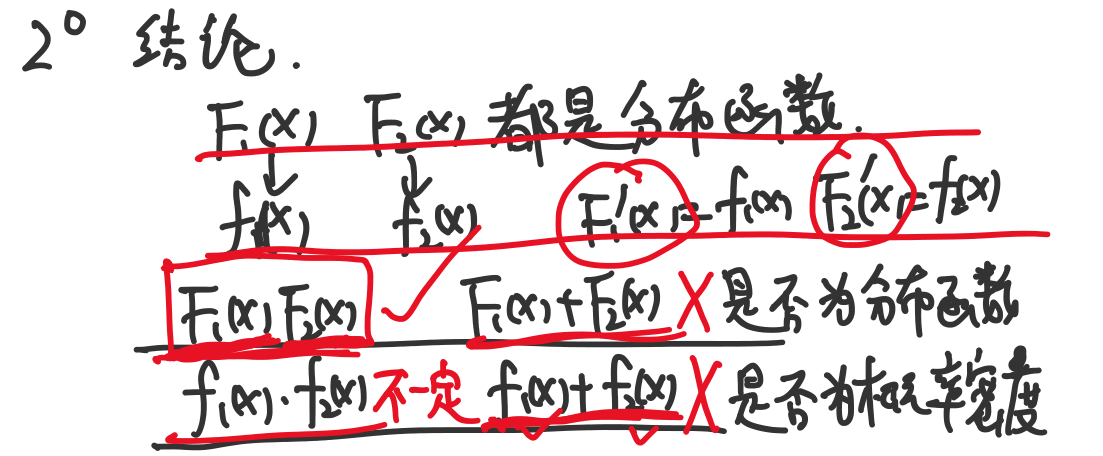 2° 结论.
F₁(x) F₂(x) 都是分布函数.
↓ ↓
f₁(x) f₂(x) F₁'(x)=f₁(x) F₂'(x)=f₂(x)
F₁(x)F₂(x) ✓ F₁(x)+F₂(x) X 是否为分布函数
f₁(x)·f₂(x) 不一定 f₁(x)+f₂(x) X 是否为概率密度